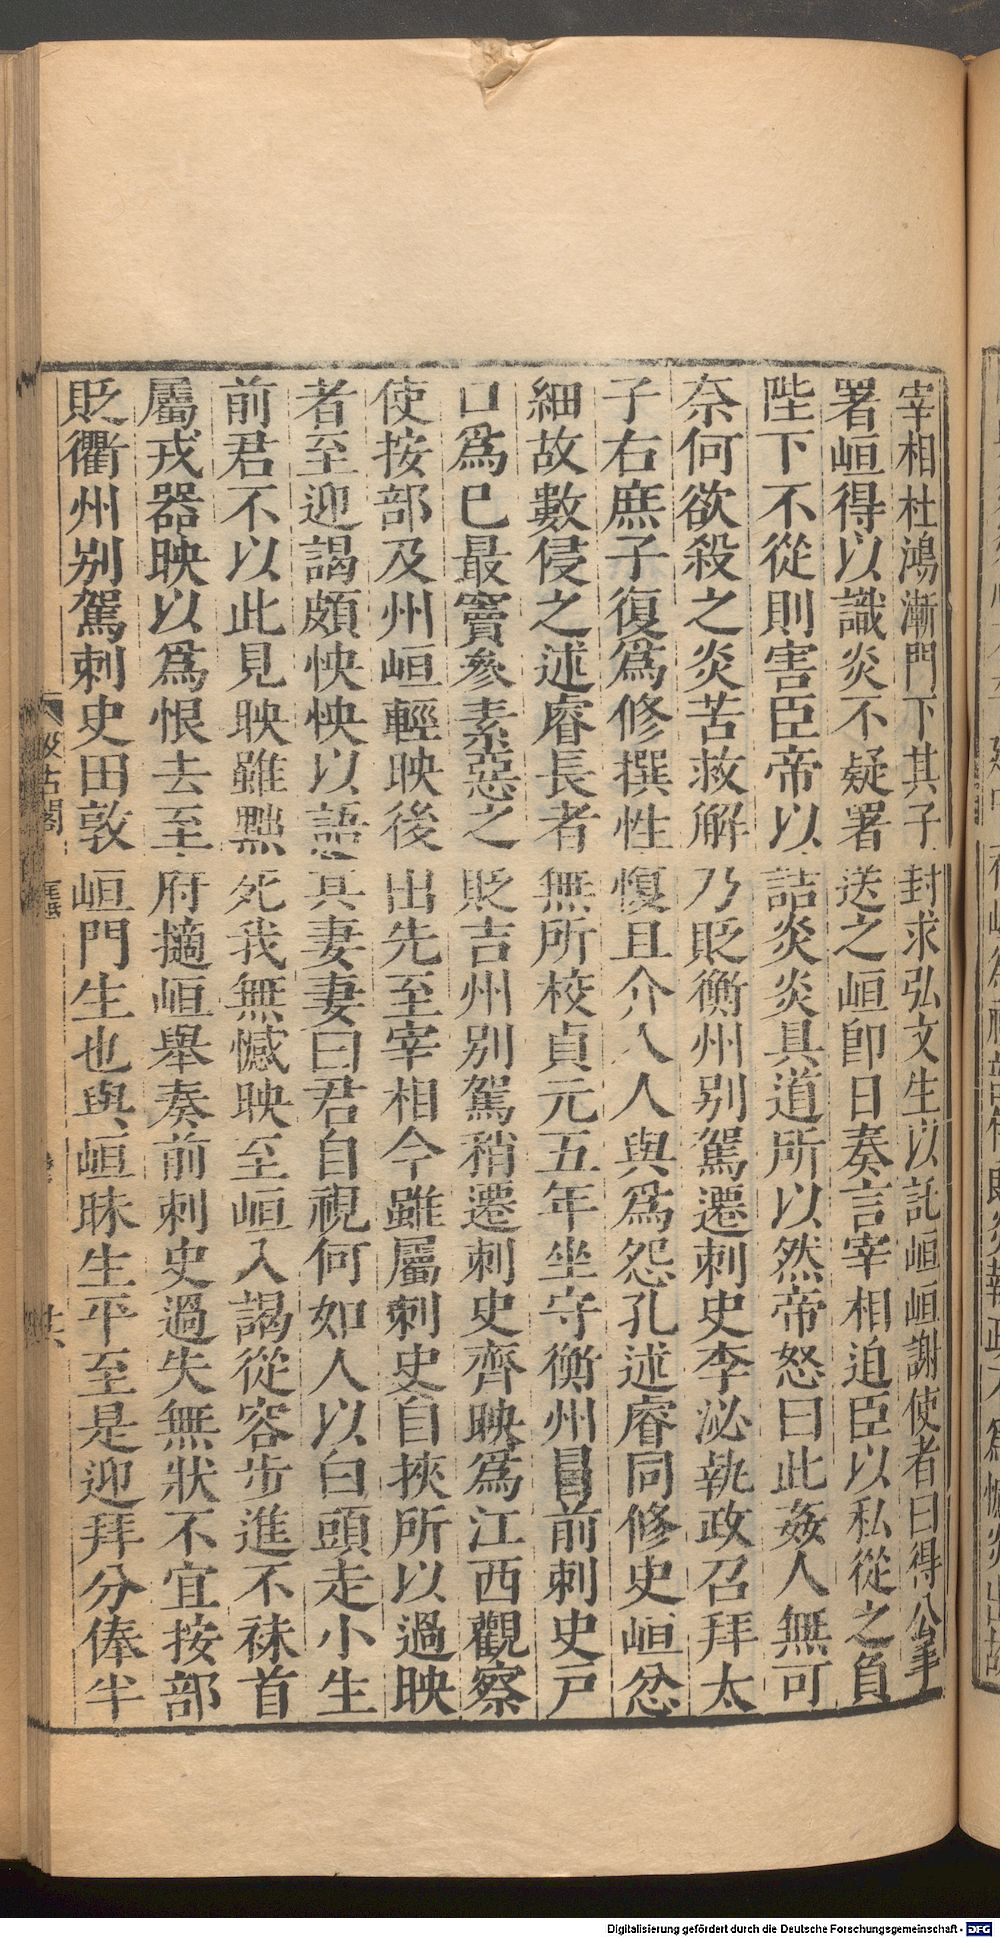 宰相杜鴻漸門下其子封求弘文生以託峘峘謝使者曰得公手
署峘得以識炎不疑署送之峘卽日奏言宰相迫臣以私從之負
陛下不從則害臣帝以詰炎炎具道所以然帝怒曰此姦人無可
奈何欲殺之炎苦救解乃貶衡州別駕遷刺史李泌執政召拜太
子右庶子復為修撰性愎且介人人與為怨孔述睿同修史峘忿
細故數侵之述睿長者無所校貞元五年坐守衡州冒前刺史戸
口為己最竇參素惡之貶吉州別駕稍遷刺史齊映為江西觀察
使按部及州峘輕映後出先至宰相今雖屬刺史自挾所以過映
者至迎謁頗怏怏以語其妻妻曰君自視何如人以白頭走小生
前君不以此見映雖黜死我無憾映至峘入謁從容步進不袜首
屬戎器映以為恨去至府擿峘舉奏前刺史過失無狀不宜按部
貶衢州別駕刺史田敦峘門生也與峘昧生平至是迎拜分俸半
汲古閣
Digitalisierung gefördert durch die Deutsche Forschungsgemeinschaft - DFG